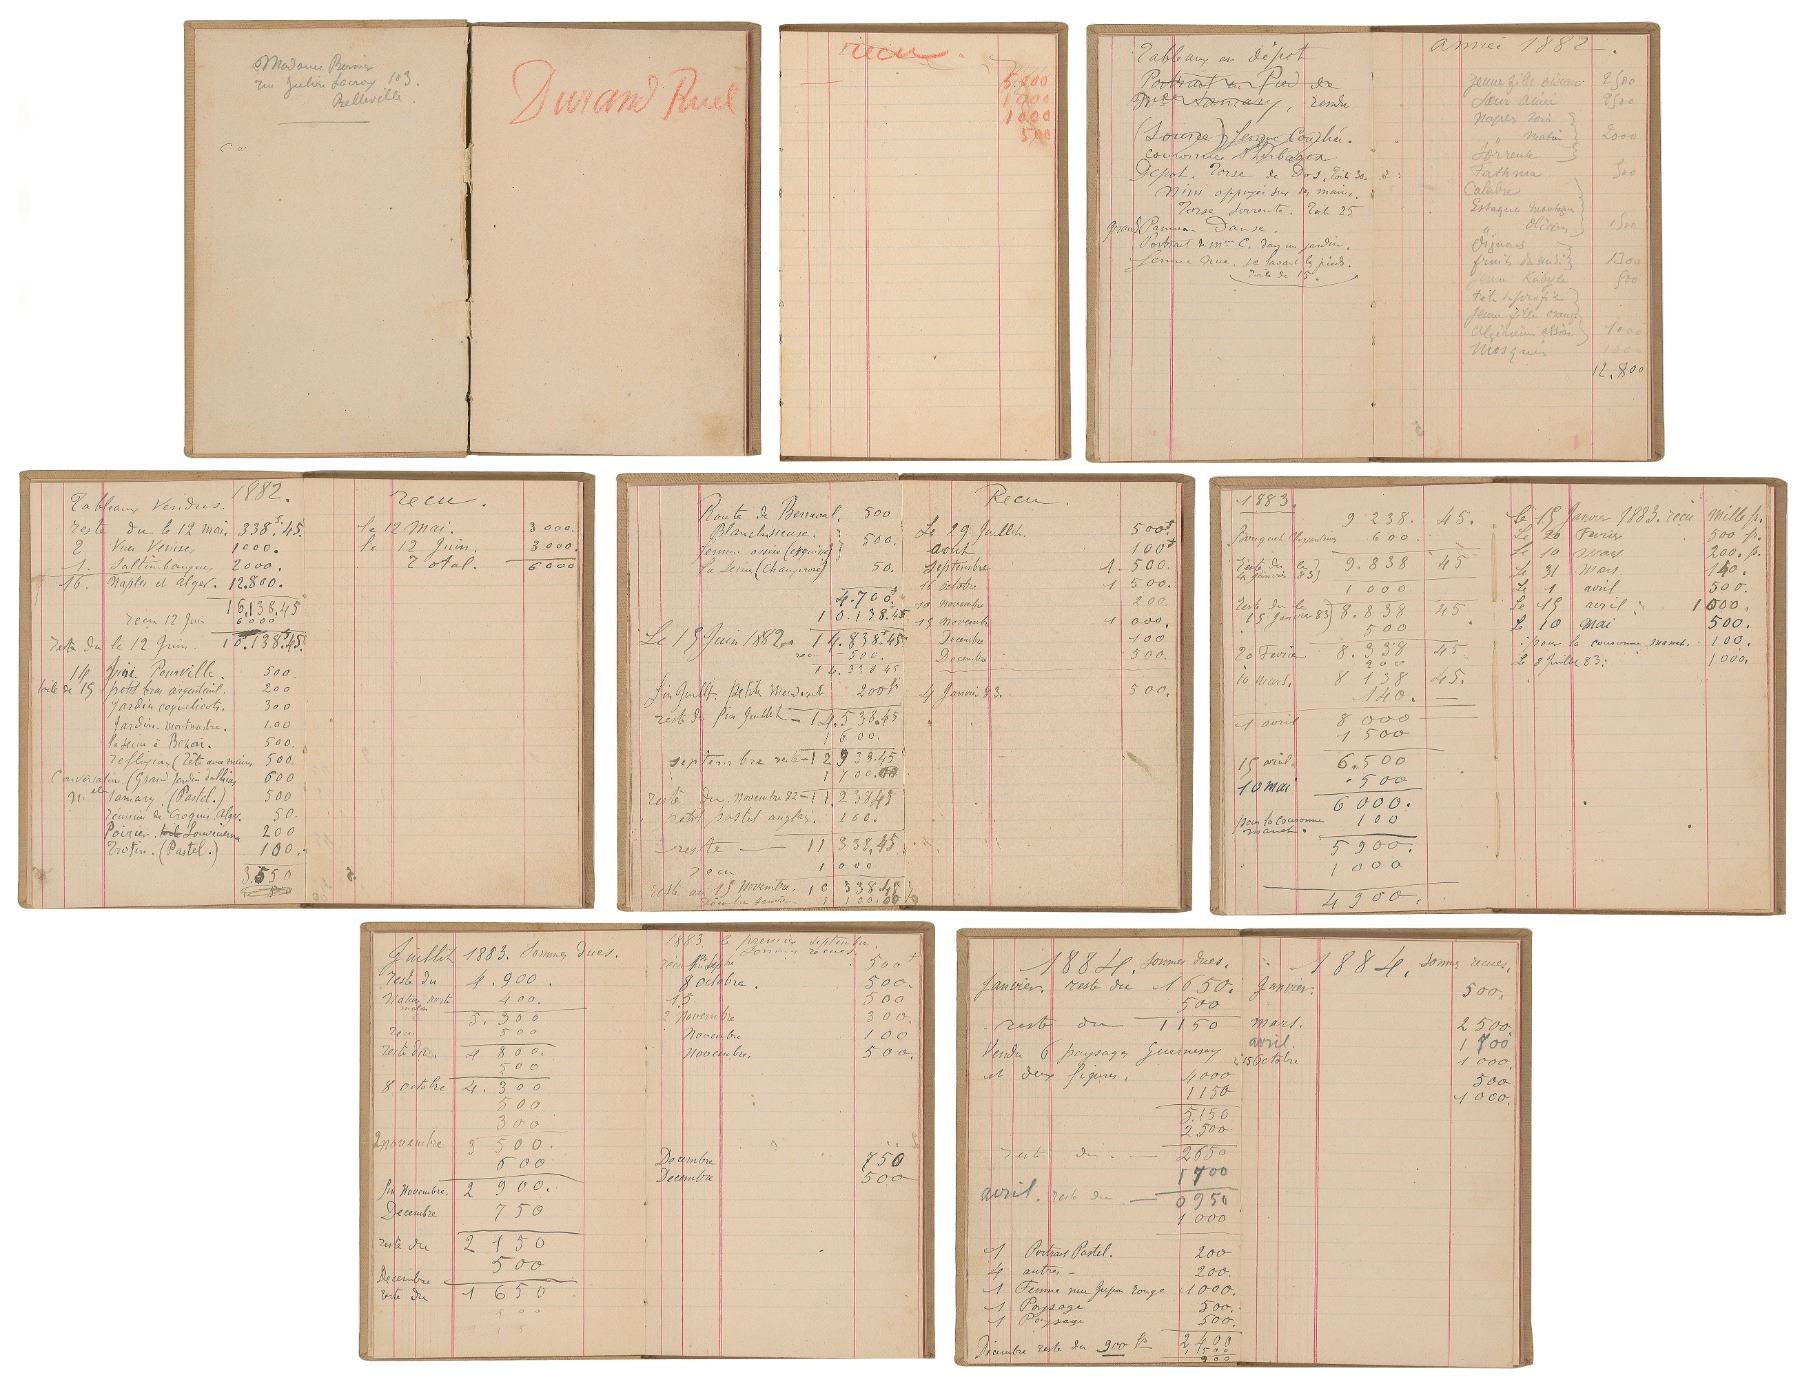 Madame Bernier
rue Julien Lacroix 103
Belleville.
Durand Ruel
recu.
5.000
1000
1000
500
Tableaux en dépôt
Portrait en Pied de
Mlle Samary, rendu
(Source) femme Couchée.
couronne
Depot. Torse de Dos. Toile 30.
Nini appuyée sur ses mains.
Torse Sorrente. Toile 25
grand Panneau Danse.
Portrait de Mme C. dans un jardin.
femme nue. se lavant les pieds.
toile de 15.
année 1882.
jeune fille 2500
Soeur ainée 2500
Naples soir
" matin 2000
Sorrente
Fathma 500
Calabre
Estaque montagne
" 1500
Oignons
fruits du midi 1300
Kabyle 500
tête
jeune fille orange
Algérienne assise 1000
Mosquée 1000
12.800
1882.
Tableaux Vendus.
reste du le 12 mai. 338f.45
2 Vues Venise 1000.
1. Saltimbanques 2000.
16. Naples et Alger. 12.800.
16.138.45
recu 12 Juin 6000
reste du le 12 Juin. 10.138f.45
14 Juin Pourville. 500
toile de 15 petit bras argenteuil. 200
Jardin coquelicots. 300
Jardin. montmartre. 100
la seine à Bezon. 500.
reflexion (Tête avec mains 500
Conversation. (Grand jardin dalhias 600
Melle Samary. (Pastel.) 500
réunion de Croquis Alger. 50.
Poirier. Louveciennes 200
Trotin. (Pastel.) 100.
3.550
recu.
le 12 Mai. 3000.
le 12 Juin. 3000.
Total. 6000
Route de Berneval. 500
Blanchisseuse.
femme assise (esquisse) 500.
la Seine (Changerose) 50.
4.700.
10.138.45
Le 15 Juin 1882. 14.838f.45
recu 500.
14.338.45
fin Juillet. Petite Mendiante 200f
reste du fin Juillet - 14.538.45
1600.
septembre reste - 12938.45
1700.00
reste du. novembre 82 - 11.238.45
petit pastel anglais. 100.
reste 11338.45
recu 1000
reste au 15 Novembre. 10338.45
1100.00
Recu.
Le 29 Juillet. 500f
aout 100f
septembre 1.500.
16 octobre 1500.
10 novembre 200.
15 novembre 1000.
Decembre 100
Decembre 500.
4 Janvier 83. 500.
1883.
9238. 45.
Bouquet 600.
Reste du le
4 janvier 83) 9.838 45
1000
reste du le
15 Janvier 83) 8.838 45
500
20 Fevrier 8.338 45.
200
10 mars. 8138 45.
140. —
1 avril 8000
1500
15 avril. 6.500
10 mai 500
6000.
pour la couronne 100
manet.
5900.
1000
4900.
Le 15 Janvier 1883. recu mille f.
Le 20 Fevrier 500 f.
Le 10 mars 200. f.
Le 31 mars 140.
Le 1 avril 500.
Le 15 avril. 1000.
Le 10 mai 500.
pour la couronne manet. 100.
Le 8 juillet 83. 1000.
Juillet 1883. Sommes dues.
reste du 4.900.
400.
5.300
recu 500
reste du. 4800.
500
8 octobre 4.300
500
300
2 novembre 3500.
600
fin Novembre. 2900.
Decembre 750
reste du 2150
500
Decembre
reste du 1650
1883. le premier septembre.
Sommes recues.
500f
8 octobre. 500.
15 500
2 Novembre 300.
Novembre 100
Novembre. 500.
Decembre 750
Decembre 500
1884. sommes dues.
Janvier. reste du 1650.
500
reste du 1150
Vendu 6 paysages Guernesey
et deux figures. 4000
1150
5.150
2500
reste du. 2650
1700
avril. reste du 0950
1000
1 Portrait Pastel. 200
4 autres - 200.
1 Femme nue Jupon rouge 1000.
1 Paysage 500.
1 Paysage 500.
2400
1500
Décembre reste du 900 f. 900
1884. Sommes recues.
Janvier. 500.
mars. 2500.
avril. 1700
15 Octobre 1000.
500
1000.